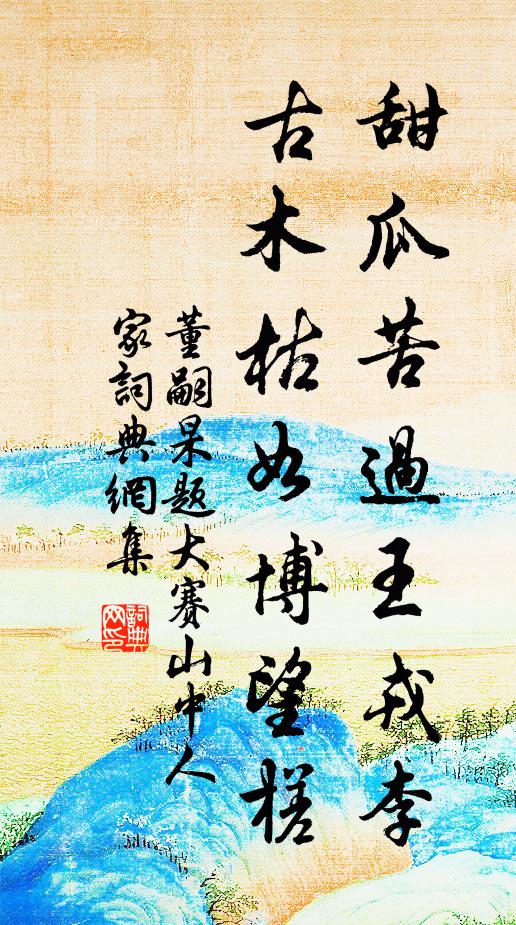 甜瓜苦過王戎李
古木枯如博望槎
董嗣杲題大賽山中人
家詞典網集
詞典網印